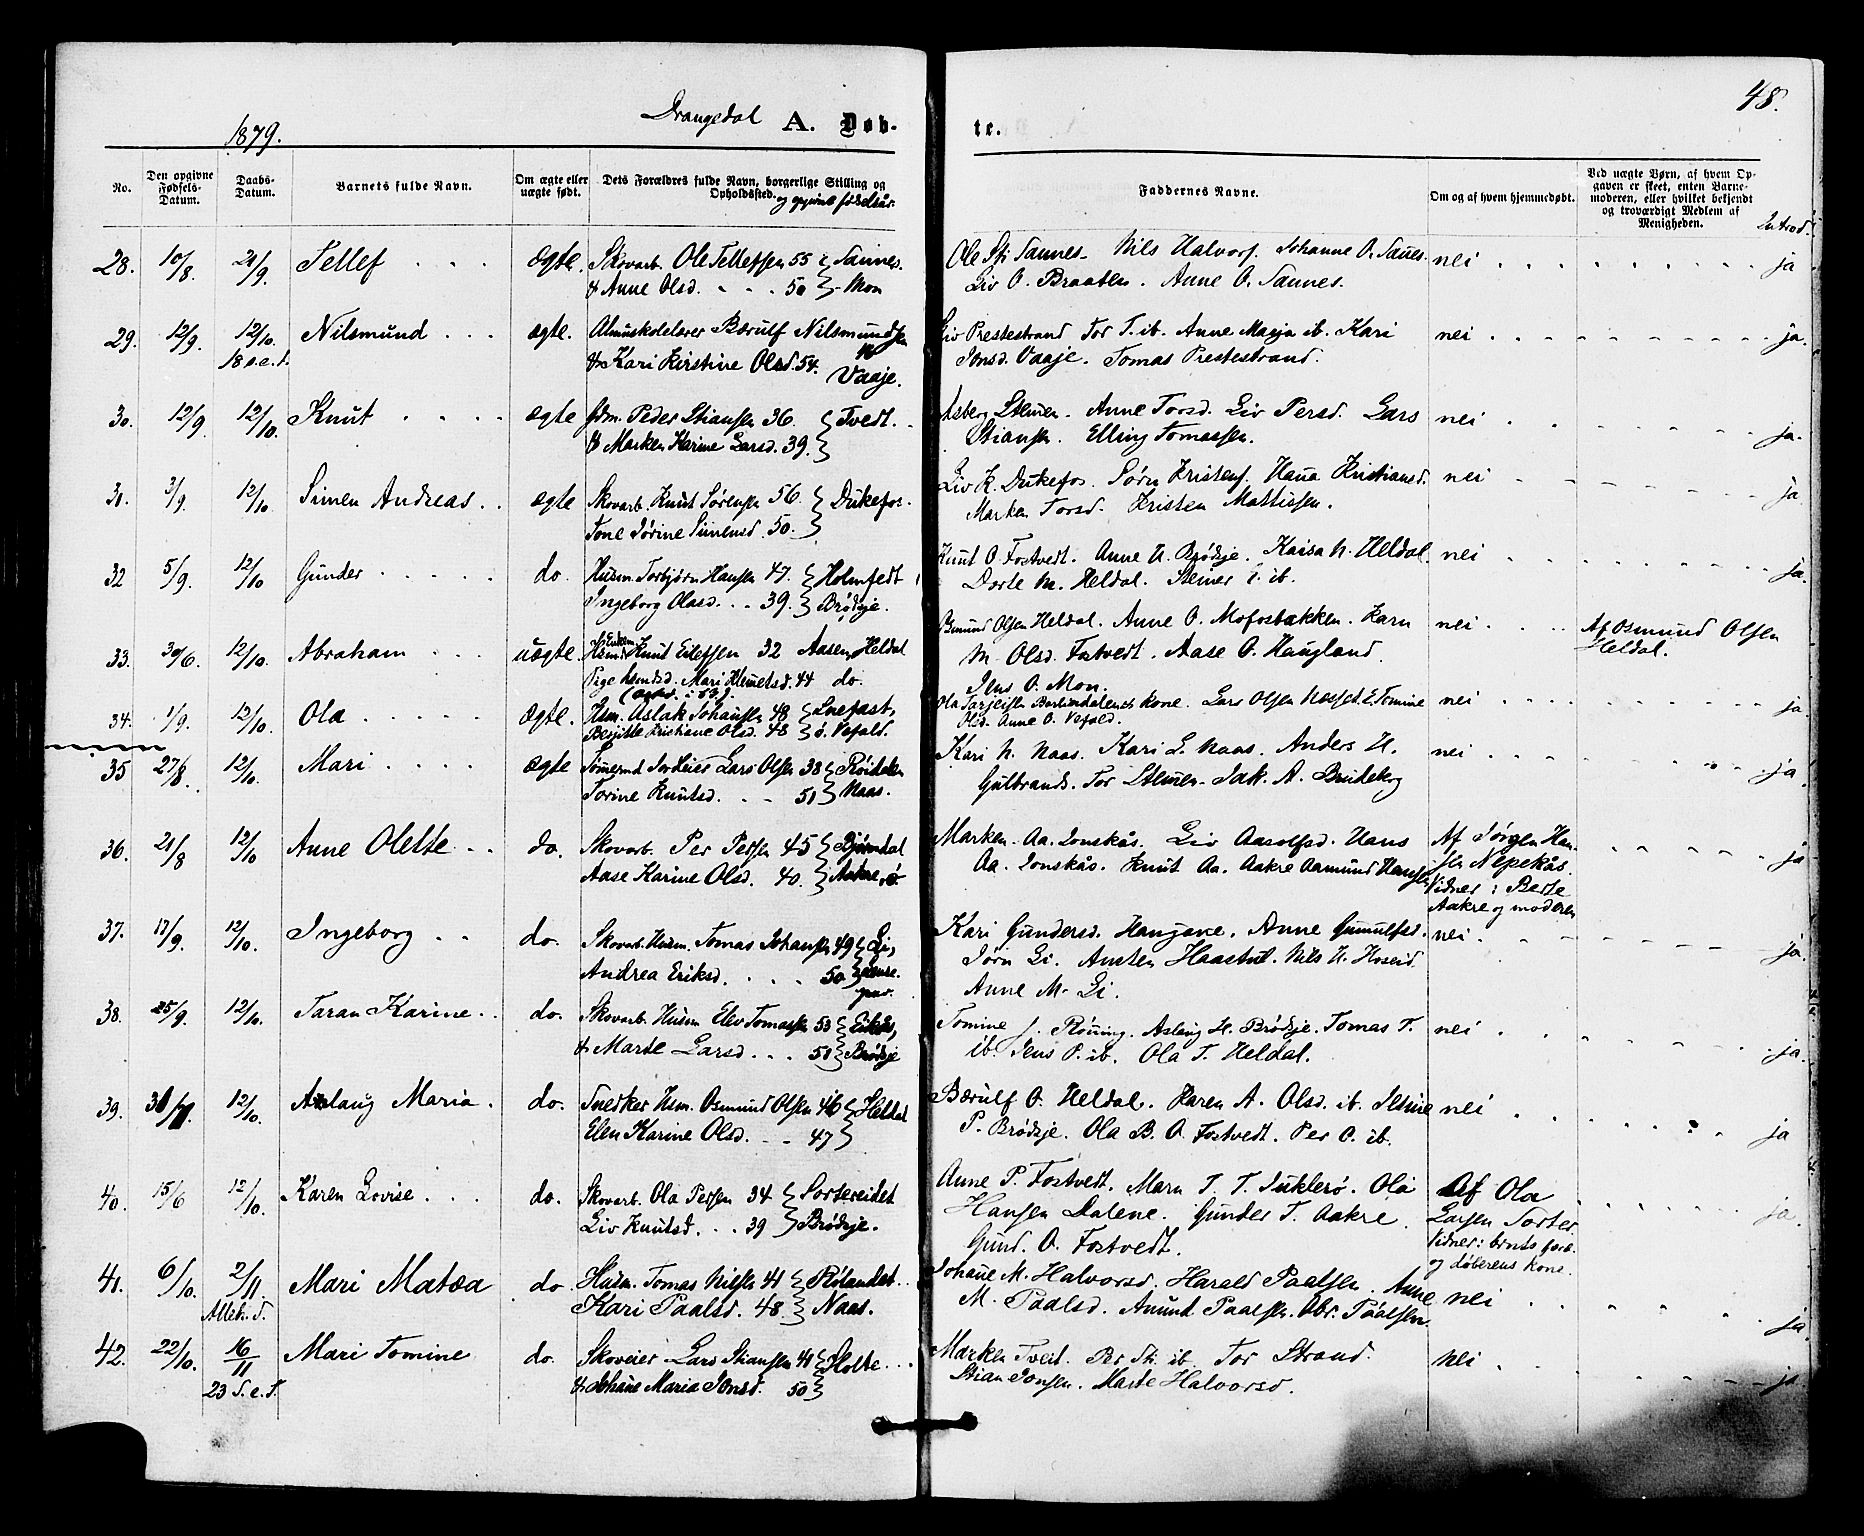 48.
1879. Drangedal A. Døb- te.
No. Den opgivne Fødsels-Datum. Daabs-Datum. Barnets fulde Navn. Om ægte eller uægte født. Dets Forældres fulde Navn, borgerlige Stilling og Opholdssted. og opgivne fødselsår. Faddernes Navne. Om og af hvem hjemmedøbt. Ved uægte Børn, af hvem Opgaven er skeet, enten Barnemoderen, eller hvilket bekjendt og troværdigt Medlem af Menigheden. Introd.
28. 10/8. 21/9 Tellef ægte. Skovarb. Ole Tellefsen 55 Sannes. Nils Halvors. Johanne O. Sannes. nei ja
& Anne Olsd. 50 Mon Liv O. Braaten. Anne O. Sannes.
29. 12/9. 12/10. Nilsmund ægte. Almuskolelærer Bærulf Nilsmundsen Liv Prestestrand Tor T. ib. Anne Marja ib. Kari nei ja.
18 s.e.t. & Kari Kirstine Olsd. 54. Vaaje. Jonsd. Vaaje. Tomas Prestestrand.
30. 12/9 12/10. Knut ægte Peder Stiansen 36. Tvedt. Anne Torsd. Liv Persd. Lars nei ja.
& Marken Karine Larsd. 39. Stiansen. Elling Tomassen.
31. 3/9. 12/10. Simen Andreas ægte Skovarb. Knut Sørensen 56. Dukefos. Liv K. Dukefos. Sørn Kristens. Kristiansd. nei ja
Tone Jørine Simensd. 50. Marken Torsd. Kristen Mattissen.
32 5/9. 12/10 Gunder do. Husm. Torbjørn Hansen 47. Holmfedt Knut O. Fostvedt. Anne H. Brødsje. Kaisa N. Heldal. nei ja.
Ingeborg Olasd. 39. Brødsje. Dorte M. Heldal. Stener ib.
33. 30/6. 12/10. Abraham uægte. Knut Eilefsen 32 Aasen, Heldal Osmund Olsen Heldal. Anne O. Mofosbakken. Karn nei Af Osmund Olsen
Pige Mari Klemetsd. 44 do. M. Olsd. Fostvedt. Aase O. Haugland. Heldal.
Jens O. Mon.
34. 1/9. 12/10. Ola ægte. Husm. Aslak Johansen 48 Ola Tarjeisen kone. Lars Olsen Tomine nei ja.
Kristiane Olsd. 48 ø. Vefald. Olsd. Anne O. Vefald.
35 27/8. 12/10. Mari ægte Lars Olsen 38 Kari N. Naas. Kari L. Naas. Anders H. nei ja.
Torine Knutsd. 51 Naas. Gulbrands. Tor Stenen. Jak. A. Brudeberg
36. 21/8 12/10 Anne Olette do. Skovarb. Per Persen 45 Bjørndal Marken Aa. Jonskås. Liv Aasolfsd. Hans Af Jørgen Han- ja
Aase Karine Olsd. 40. Aakre Aa. Jonskås. Knut Aa. Aakre Aamund Hansen sen Nepekås.
Vidner: Berte
Aakre og moderen
37. 17/9. 12/10. Ingeborg do. Skovarb. Husm. Tomas Johansen 49 Li, Kari Gundersd. Haugane. Anne Gunnulfsd. nei. ja.
Andrea Eriksd. 50 Jørn Li. Austen Nils H. Hoseid.
Anne M. Li.
38. 25/9. 12/10. Taran Karine do. Skovarb. Husm Elev Tomassen 53 Tomine J. Rønning. Aslaug H. Brødsje. Tomas T. nei ja.
& Marte Larsd. 51 Brødsje ib. Jens P. ib. Ola T. Heldal.
39. 12/10. Aslaug Maria do. Snedker Husm. Osmund Olsen 46 Heldal Bærulf O. Heldal. Karen A. Olsd. ib. nei ja
Elen Karine Olsd. 47 P. Brødsje. Ola B. O. Fostvedt. Per O. ib.
40. 15/6 12/10. Karen Lovise do. Skovarb. Ola Persen 34 Sortereidet Anne P. Fostvedt. Marn T. T. Suklerø. Ola Af Ola ja.
Liv Knutsd. 39 Brødsje. Hansen Dalene. Gunder T. Aakre. Larsen Sorter.
Gund. O. Fostvedt. Vidner: brnts foræ.
og døberens kone.
41. 6/10. 2/11 Mari Matea do Husm. Tomas Nilsen 41 Rølandet Johane M. Halvorsd. Harald Paalsen. Anne nei ja.
Alleh. d. Kari Paalsd. 48 Naas. M. Paalsd. Amund Paalsen. Abr. Paalsen.
42. 22/10. 16/11 Mari Tomine do. Skoveier Lars Stiansen 41 Holte Marken Tveit. Per St. ib. Tor Strand. nei ja
23 S.e.T. & Johane Maria Jonsd. 50 Stian Jonsen. Marte Halvorsd.